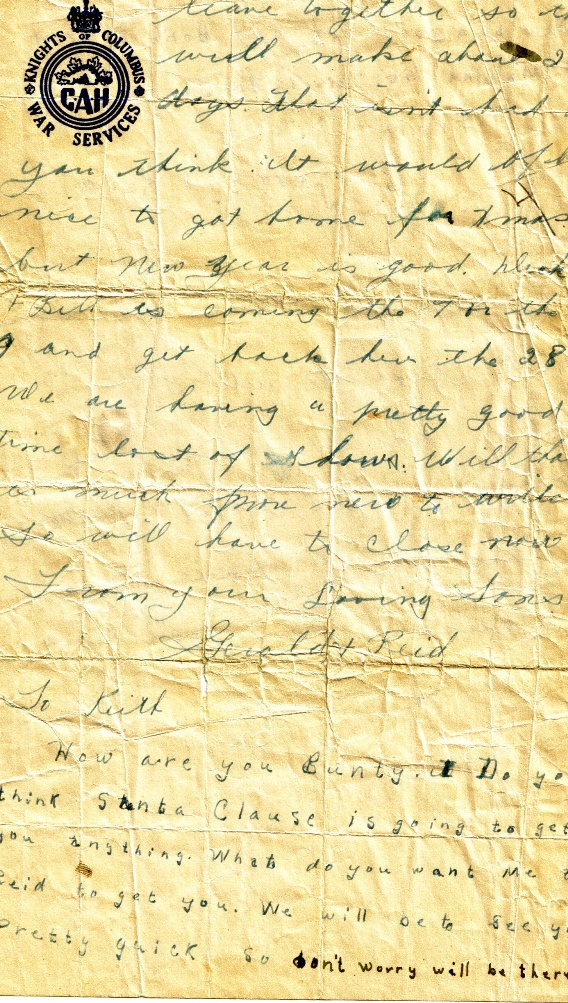 KNIGHTS OF COLUMBUS
CAH
WAR SERVICES
leave together so
will make about 2
days. That isn't bad
you think. It would
nice to got home for Xmas
but New Year is good.
Bill is coming the 7 or
9 and get back here the 28
We are having a pretty good
time lost of shows. Will
as much from new to
so will have to close now
From your Loving Sons
Gerald + Reid
To Keith
How are you Bunty. Do yo
think Santa Clause is going to get
you anything. What do you want Me
Reid to get you. We will be to see y
Pretty quick so don't worry will be there